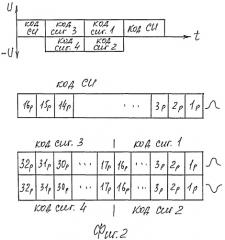 U
код СИ код сиг. 3 код сиг. 1 код СИ
t
код сиг. 4 код сиг. 2
-U
код СИ
16р 15р 14р ... 3р 2р 1р
код сиг. 3 код сиг. 1
32р 31р 30р ... 17р 16р ... 3р 2р 1р
32р 31р 30р ... 17р 16р ... 3р 2р 1р
код сиг. 4 код сиг. 2
Фиг. 2